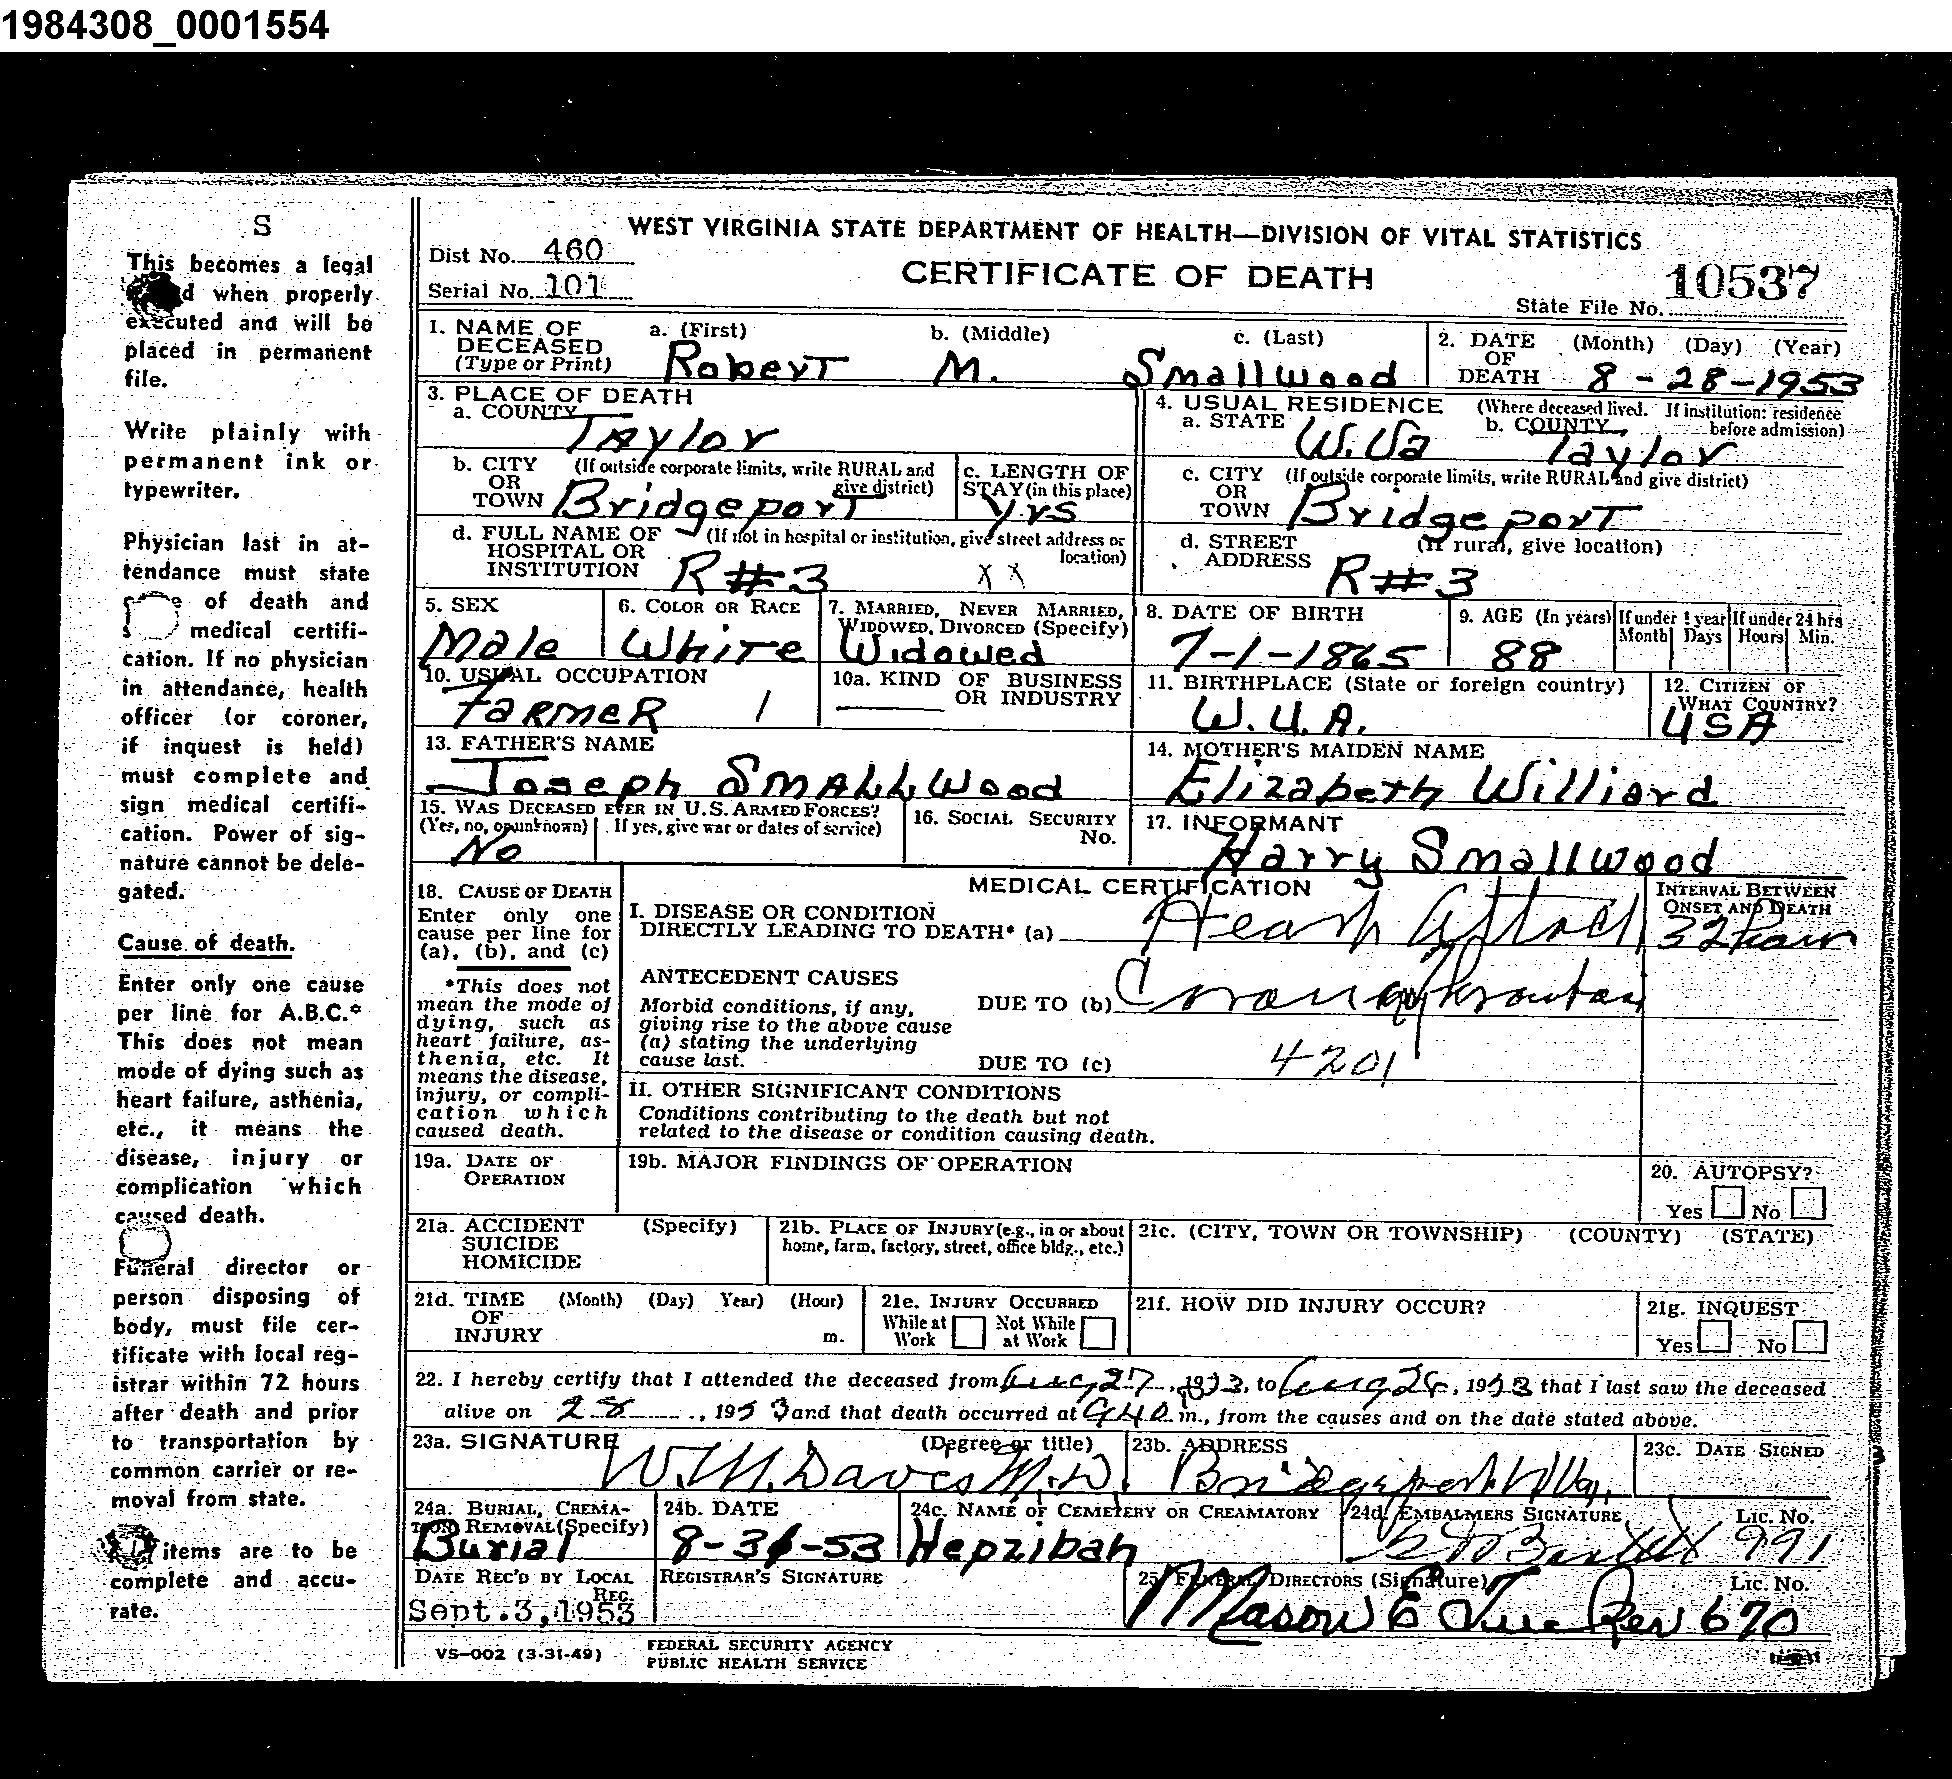 1984308_0001554
S
This becomes a legal
d when properly
executed and will be
placed in permanent
file.
Write plainly with
permanent ink or
typewriter.
Physician last in at-
tendance must state
of death and
medical certifi-
cation. If no physician
in attendance, health
officer (or coroner,
if inquest is held)
must complete and
sign medical certifi-
cation. Power of sig-
nature cannot be dele-
gated.
Cause of death.
Enter only one cause
per line for A.B.C.*
This does not mean
mode of dying such as
heart failure, asthenia,
etc., it means the
disease, injury or
complication which
caused death.
Funeral director or
person disposing of
body, must file cer-
tificate with local reg-
istrar within 72 hours
after death and prior
to transportation by
common carrier or re-
moval from state.
items are to be
complete and accu-
rate.
WEST VIRGINIA STATE DEPARTMENT OF HEALTH—DIVISION OF VITAL STATISTICS
Dist No. 460
CERTIFICATE OF DEATH
Serial No. 101
State File No. 10537
1. NAME OF DECEASED (Type or Print) a. (First) b. (Middle) c. (Last)
Robert M. Smallwood
2. DATE OF DEATH (Month) (Day) (Year)
8-28-1953
3. PLACE OF DEATH
a. COUNTY
Taylor
4. USUAL RESIDENCE (Where deceased lived. If institution: residence before admission)
a. STATE W.Va b. COUNTY Taylor
b. CITY OR TOWN (If outside corporate limits, write RURAL and give district)
Bridgeport
c. LENGTH OF STAY (in this place)
Yrs
c. CITY OR TOWN (If outside corporate limits, write RURAL and give district)
Bridgeport
d. FULL NAME OF HOSPITAL OR INSTITUTION (If not in hospital or institution, give street address or location)
R#3 XX
d. STREET ADDRESS (If rural, give location)
R#3
5. SEX
Male
6. COLOR OR RACE
White
7. MARRIED, NEVER MARRIED, WIDOWED, DIVORCED (Specify)
Widowed
8. DATE OF BIRTH
7-1-1865
9. AGE (In years) If under 1 year If under 24 hrs
Month Days Hours Min.
88
10. USUAL OCCUPATION
Farmer 1
10a. KIND OF BUSINESS OR INDUSTRY
11. BIRTHPLACE (State or foreign country)
W.V.A.
12. CITIZEN OF WHAT COUNTRY?
USA
13. FATHER'S NAME
Joseph Smallwood
14. MOTHER'S MAIDEN NAME
Elizabeth Williard
15. WAS DECEASED EVER IN U.S. ARMED FORCES?
(Yes, no, or unknown) If yes, give war or dates of service)
No
16. SOCIAL SECURITY No.
17. INFORMANT
Harry Smallwood
18. CAUSE OF DEATH
Enter only one
cause per line for
(a), (b), and (c)
*This does not
mean the mode of
dying, such as
heart failure, as-
thenia, etc. It
means the disease,
injury, or compli-
cation which
caused death.
MEDICAL CERTIFICATION
INTERVAL BETWEEN ONSET AND DEATH
I. DISEASE OR CONDITION
DIRECTLY LEADING TO DEATH* (a) Heart Attack 32
ANTECEDENT CAUSES
Morbid conditions, if any,
giving rise to the above cause
(a) stating the underlying
cause last.
DUE TO (b) Coronary
DUE TO (c) 4201
II. OTHER SIGNIFICANT CONDITIONS
Conditions contributing to the death but not
related to the disease or condition causing death.
19a. DATE OF OPERATION
19b. MAJOR FINDINGS OF OPERATION
20. AUTOPSY?
Yes No
21a. ACCIDENT SUICIDE HOMICIDE (Specify)
21b. PLACE OF INJURY (e.g., in or about home, farm, factory, street, office bldg., etc.)
21c. (CITY, TOWN OR TOWNSHIP) (COUNTY) (STATE)
21d. TIME OF INJURY (Month) (Day) Year) (Hour) m.
21e. INJURY OCCURRED
While at Work Not While at Work
21f. HOW DID INJURY OCCUR?
21g. INQUEST
Yes No
22. I hereby certify that I attended the deceased from Aug 27, 1953, to Aug 28, 1953 that I last saw the deceased
alive on 28, 1953 and that death occurred at 940 m., from the causes and on the date stated above.
23a. SIGNATURE (Degree or title)
W.M. Daves M.D.
23b. ADDRESS
Bridgeport W Va.
23c. DATE SIGNED
24a. BURIAL, CREMATION REMOVAL (Specify)
Burial
24b. DATE
8-31-53
24c. NAME OF CEMETERY OR CREAMATORY
Hepzibah
24d. EMBALMERS SIGNATURE Lic. No.
991
DATE REC'D BY LOCAL REG.
Sept. 3, 1953
REGISTRAR'S SIGNATURE
25. FUNERAL DIRECTORS (Signature) Lic. No.
Mason E Tucker 670
VS-002 (3-31-49)
FEDERAL SECURITY AGENCY
PUBLIC HEALTH SERVICE